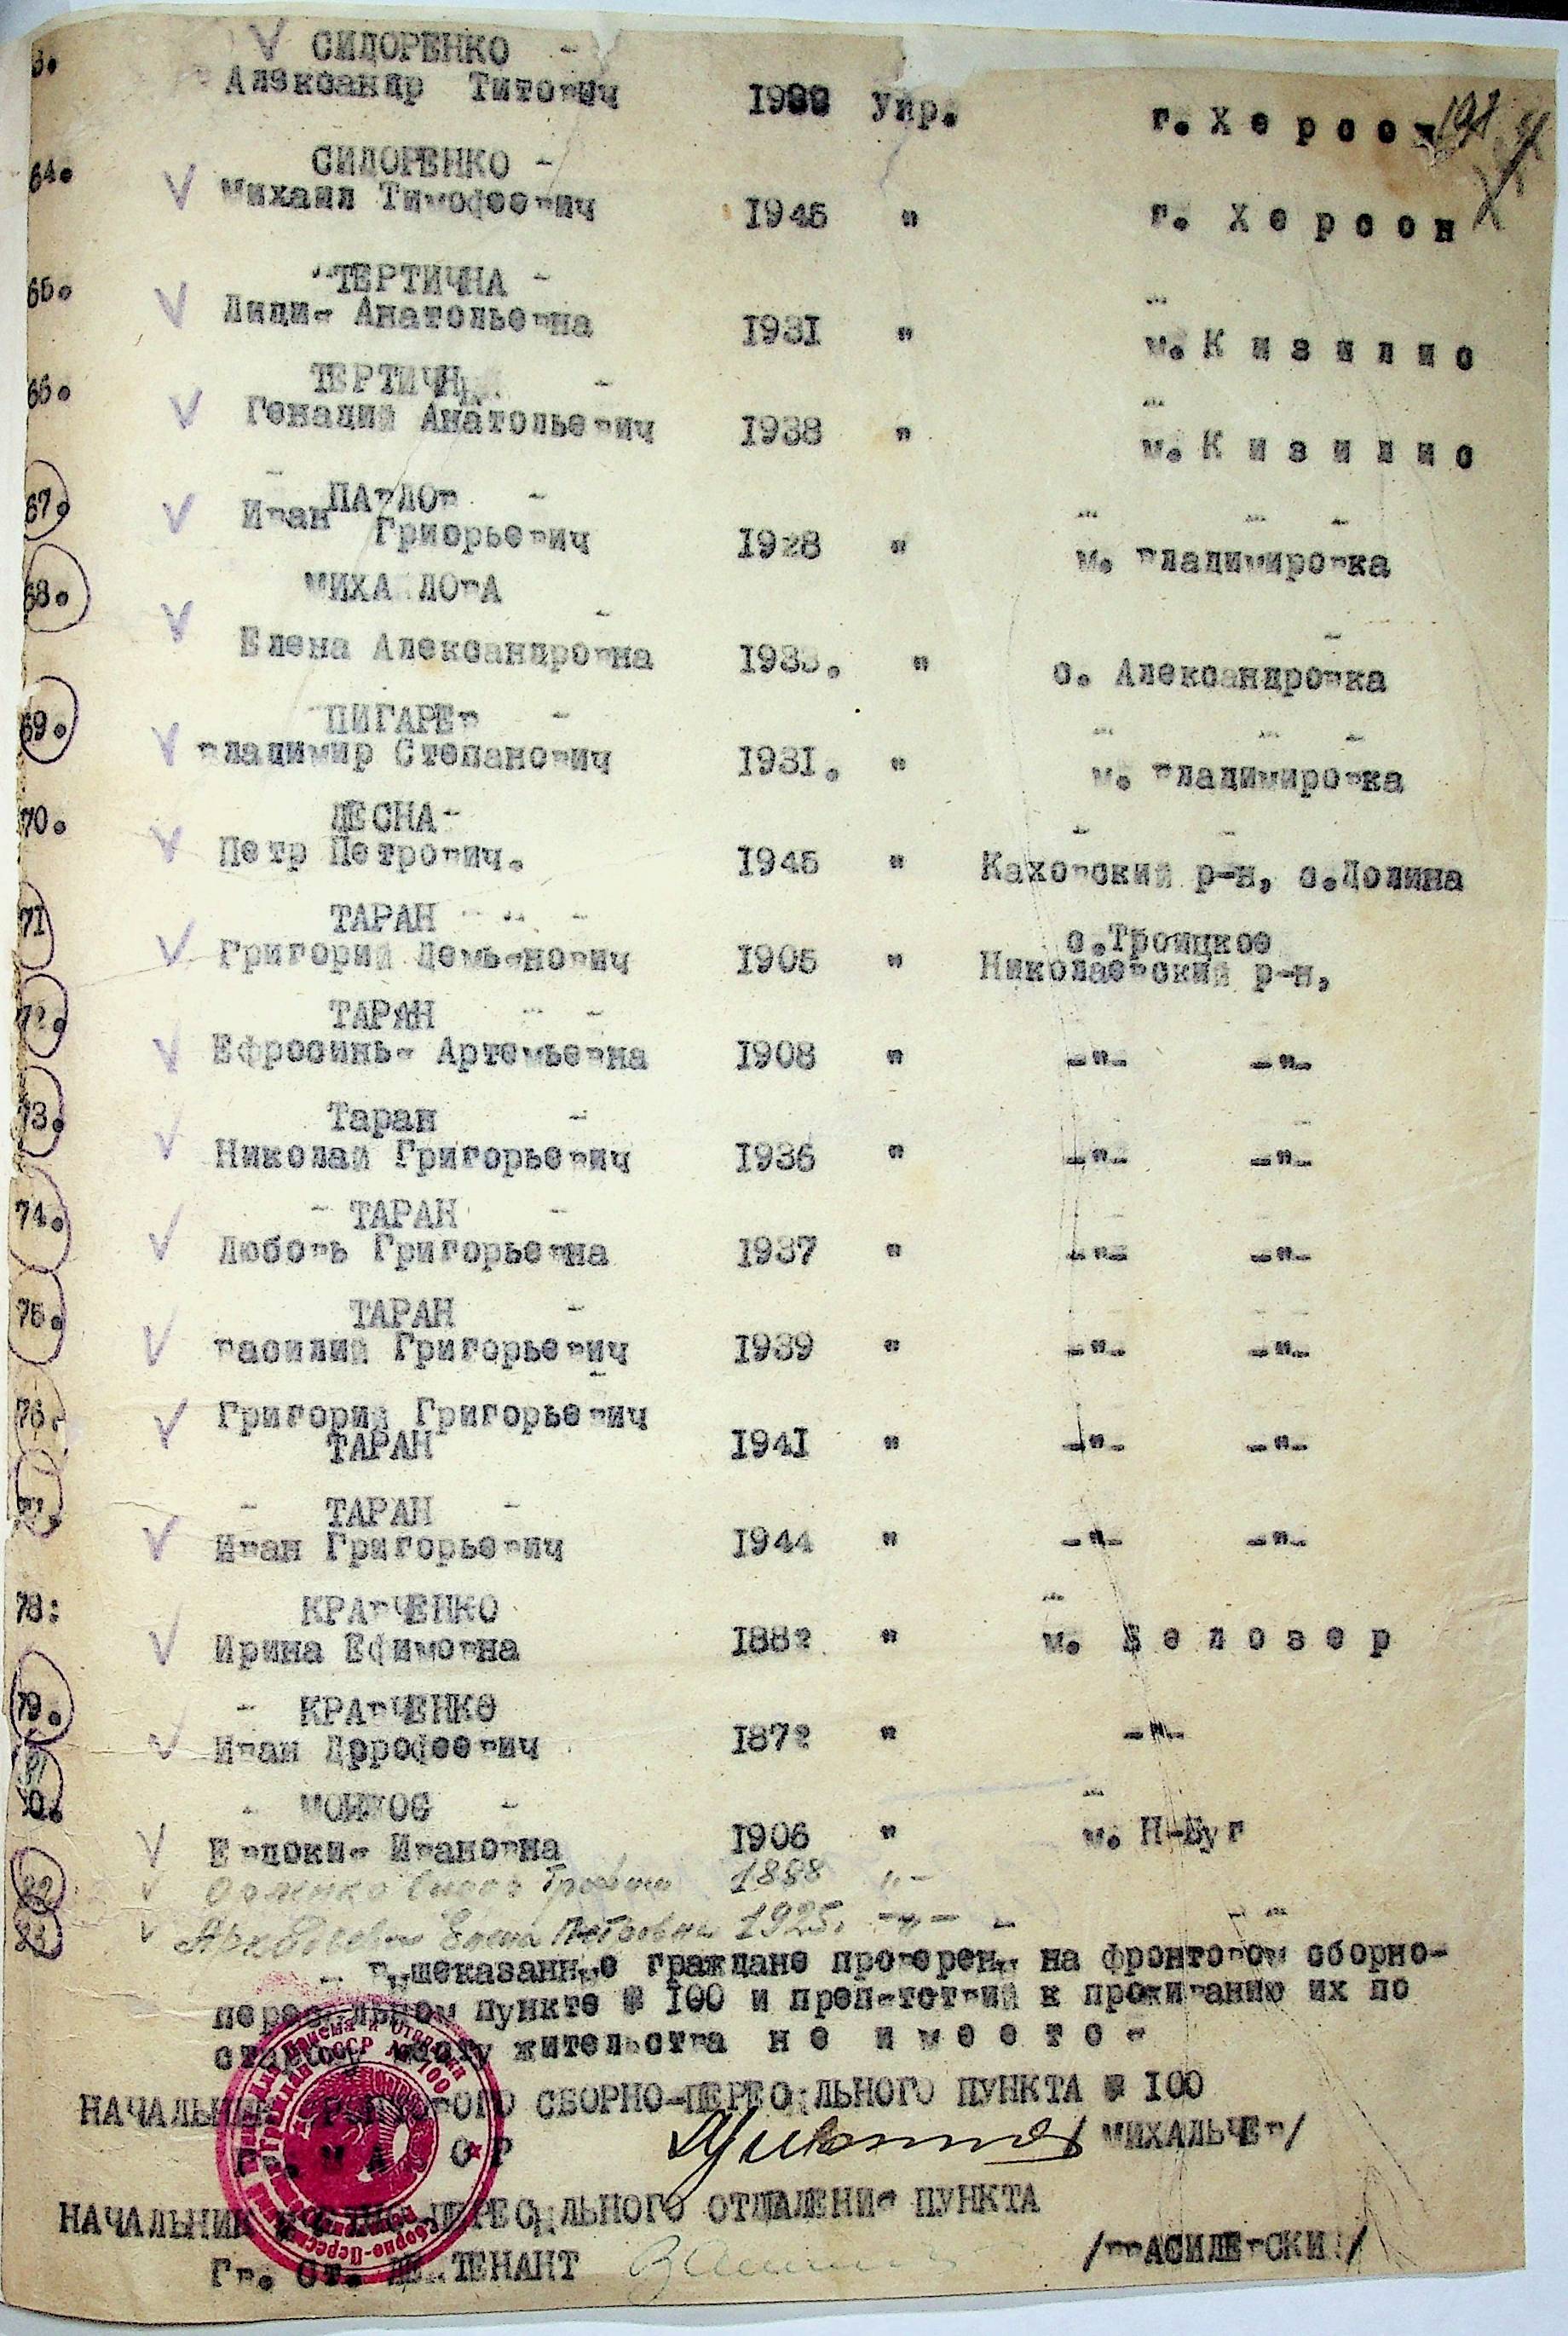 СИДОРЕНКО -
Александр Титович 19 укр. г. Х е р с о н
64. СИДОРЕНКО -
Михаил Тимофеевич 1945 " г. Х е р с о н
65. ТЕРТИЧНА -
Лидия Анатольевна 1931 " м. К и з и л и с
66. ТЕРТИЧН -
Генадий Анатольевич 1938 " м. К и з и л и с
67. ПАВЛОВ -
Иван Григорьевич 1928 " м. Владимировка
68. МИХАЙЛОВА
Елена Александровна 193 . " с. Александровка
69. ПИГАРЕВ -
Владимир Степанович 1931. " м. Владимировка
70. ДЕСНА-
Петр Петрович. 1945 " Каховский р-н, с.Долина
71 ТАРАН -
Григорий Демьянович 1905 " с.Троицкое
Николаевский р-н,
72. ТАРАН -
Ефросинья Артемьевна 1908 " -"- -"-
73. Таран -
Николай Григорьевич 1935 " -"- -"-
74. - ТАРАН -
Любовь Григорьевна 1937 " -"- -"-
75. ТАРАН -
Василий Григорьевич 1939 " -"- -"-
76. Григорий Григорьевич
ТАРАН 1941 " -"- -"-
- ТАРАН -
Иван Григорьевич 1944 " -"- -"-
78: КРАВЧЕНКО
Ирина Ефимовна 1882 " м. Б е л о з е р
79. - КРАВЧЕНКО
Иван Дорофеевич 1872 " -"-
- -
Евдокия Ивановна 1906 " м. Н-Буг
1888 "-
Елена Петровна 1925. -"- -
Вышеказанные граждане проверены на фронтовом сборно-
пересыльном пункте № 100 и препятствий к проживанию их по
старому месту жительства н е и м е е т с я
НАЧАЛЬНИК ФРОНТОВОГО СБОРНО-ПЕРЕСЫЛЬНОГО ПУНКТА № 100
Гв. М А Й О Р МИХАЛЬЧЕВ/
НАЧАЛЬНИК ПЕРЕСЫЛЬНОГО ОТДАЛЕНИЯ ПУНКТА
Гв. Ст. ЛЕЙТЕНАНТ /ВАСИЛЕВСКИЙ/